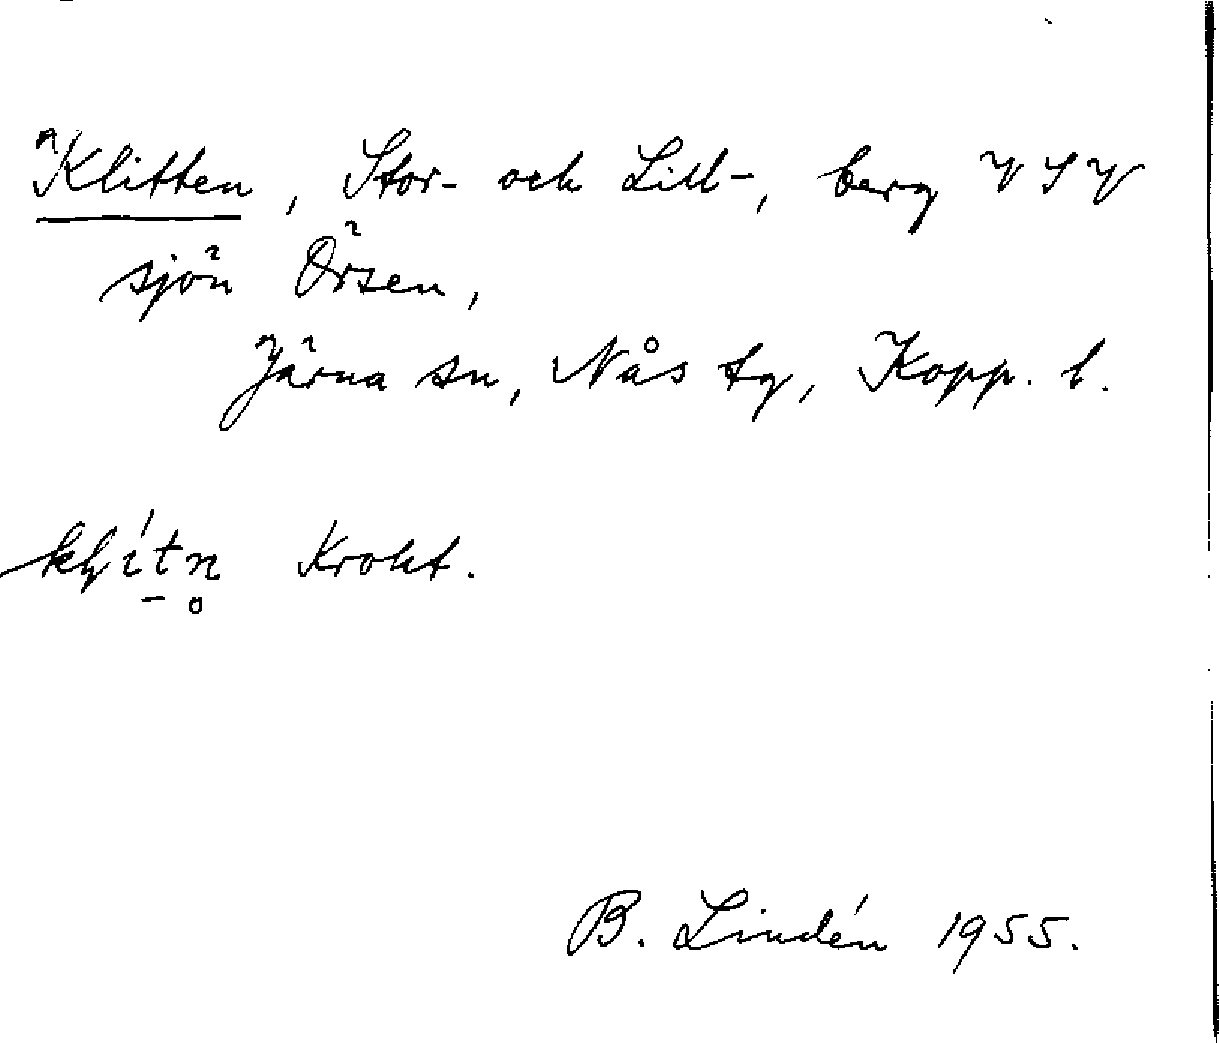 Klitten, Stor- och Lill-, berg VSV
sjön Örsen,
Järna sn, Nås tg, Kopp. l.
Krokt.
B. Lindén 1955.